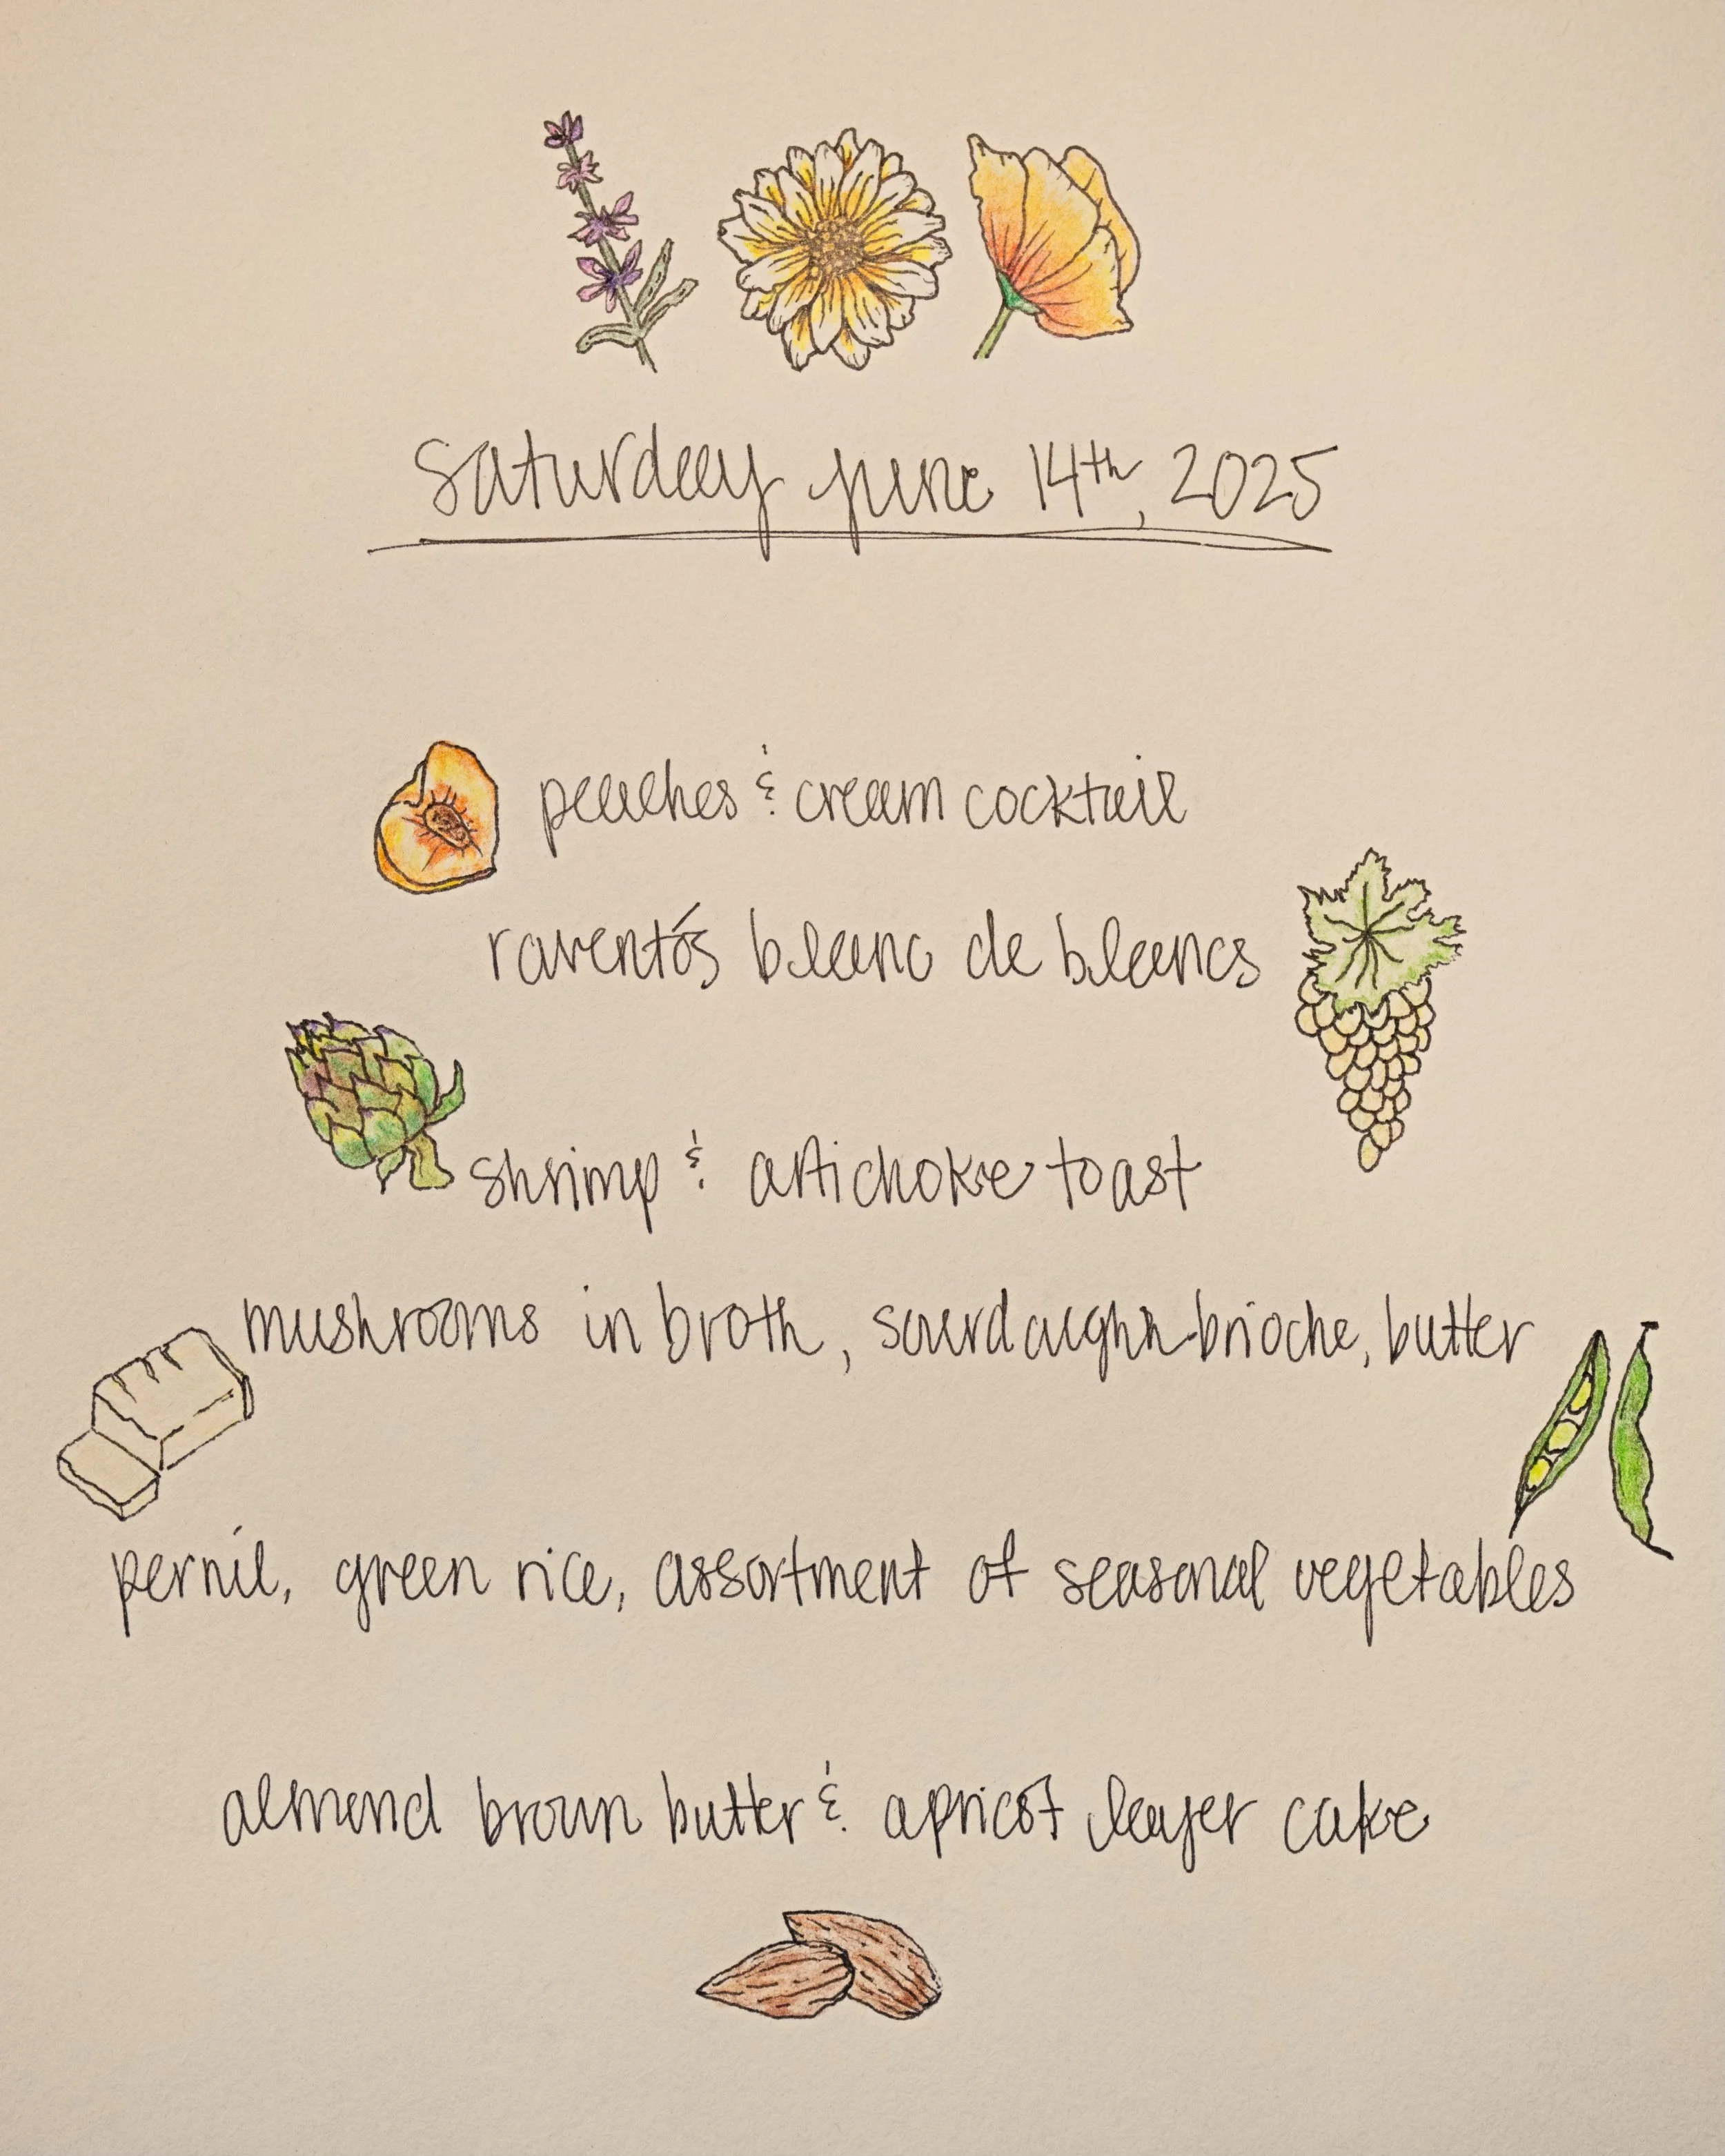 saturday june 14th, 2025
peaches & cream cocktail
raventós blanc de blancs
shrimp & artichoke toast
mushrooms in broth, sourdough brioche, butter
pernil, green rice, assortment of seasonal vegetables
almond brown butter & apricot layer cake